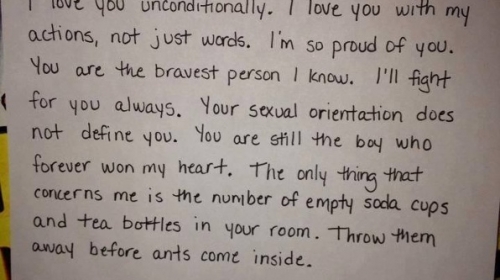 I love you unconditionally. I love you with my
actions, not just words. I'm so proud of you.
You are the bravest person I know. I'll fight
for you always. Your sexual orientation does
not define you. You are still the boy who
forever won my heart. The only thing that
concerns me is the number of empty soda cups
and tea bottles in your room. Throw them
away before ants come inside.